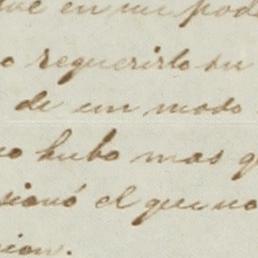 ve en mi pod
o requerirlo su
de un modo
o hubo mas q
sionó el que no
sion.